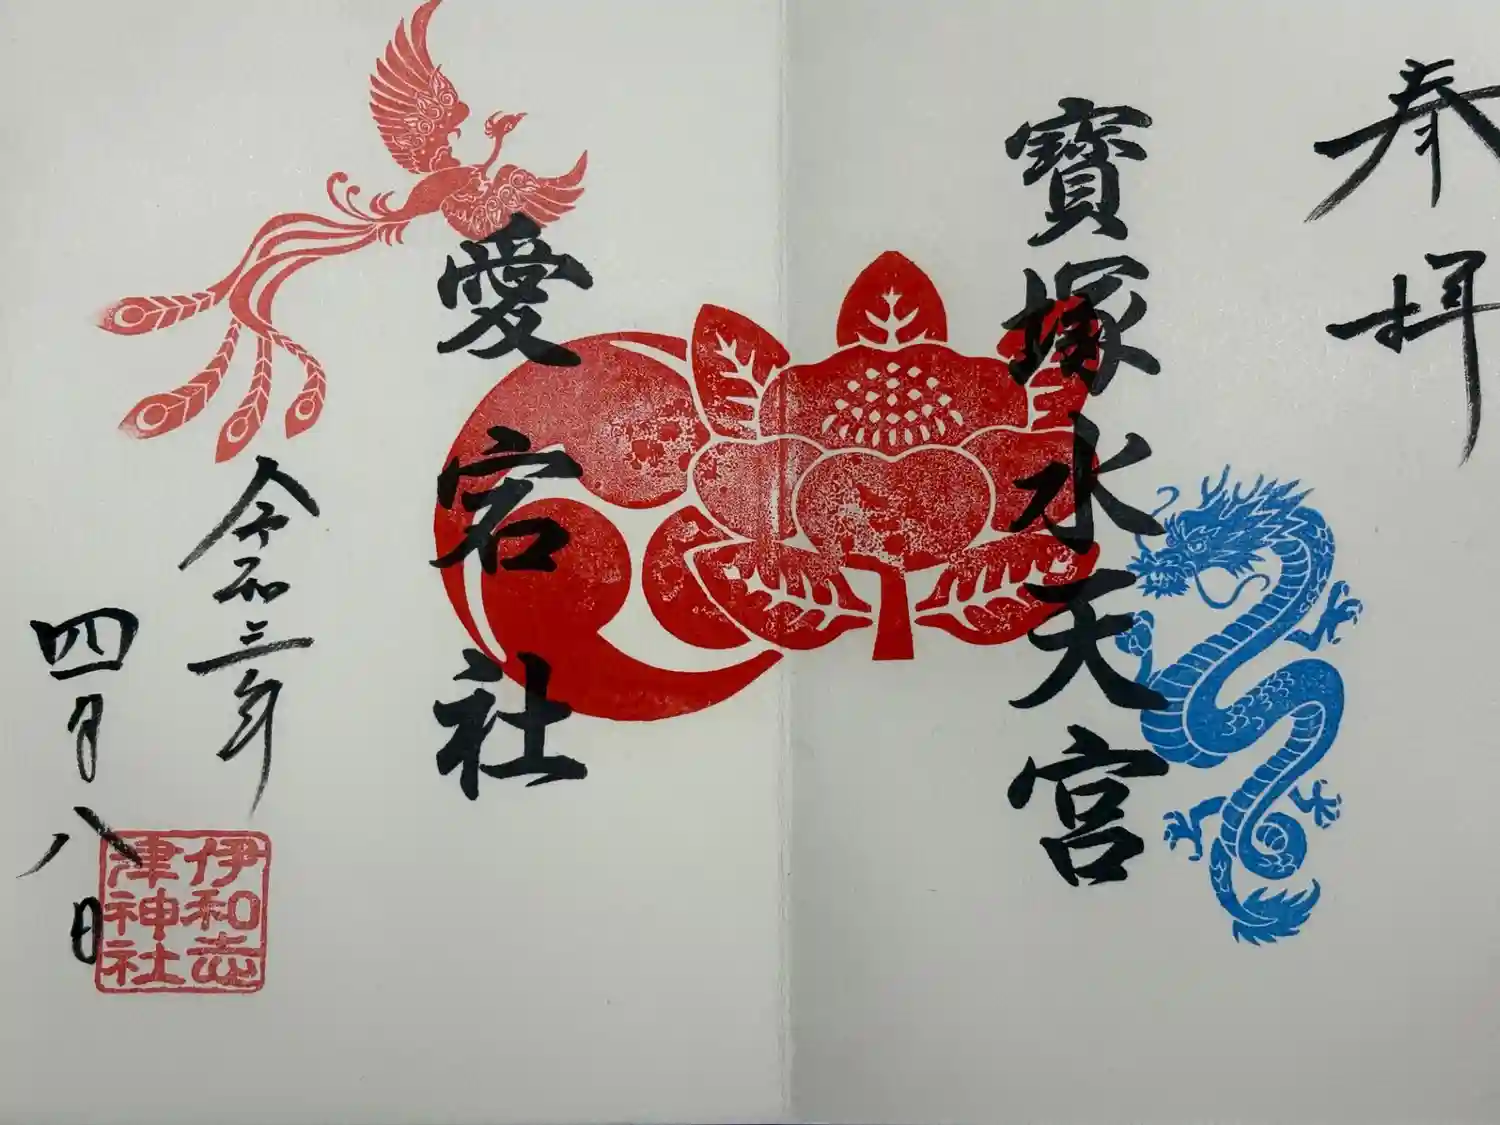 奉拝
寶塚水天宮
愛宕社
令和三年
四月八日
伊和志
津神社